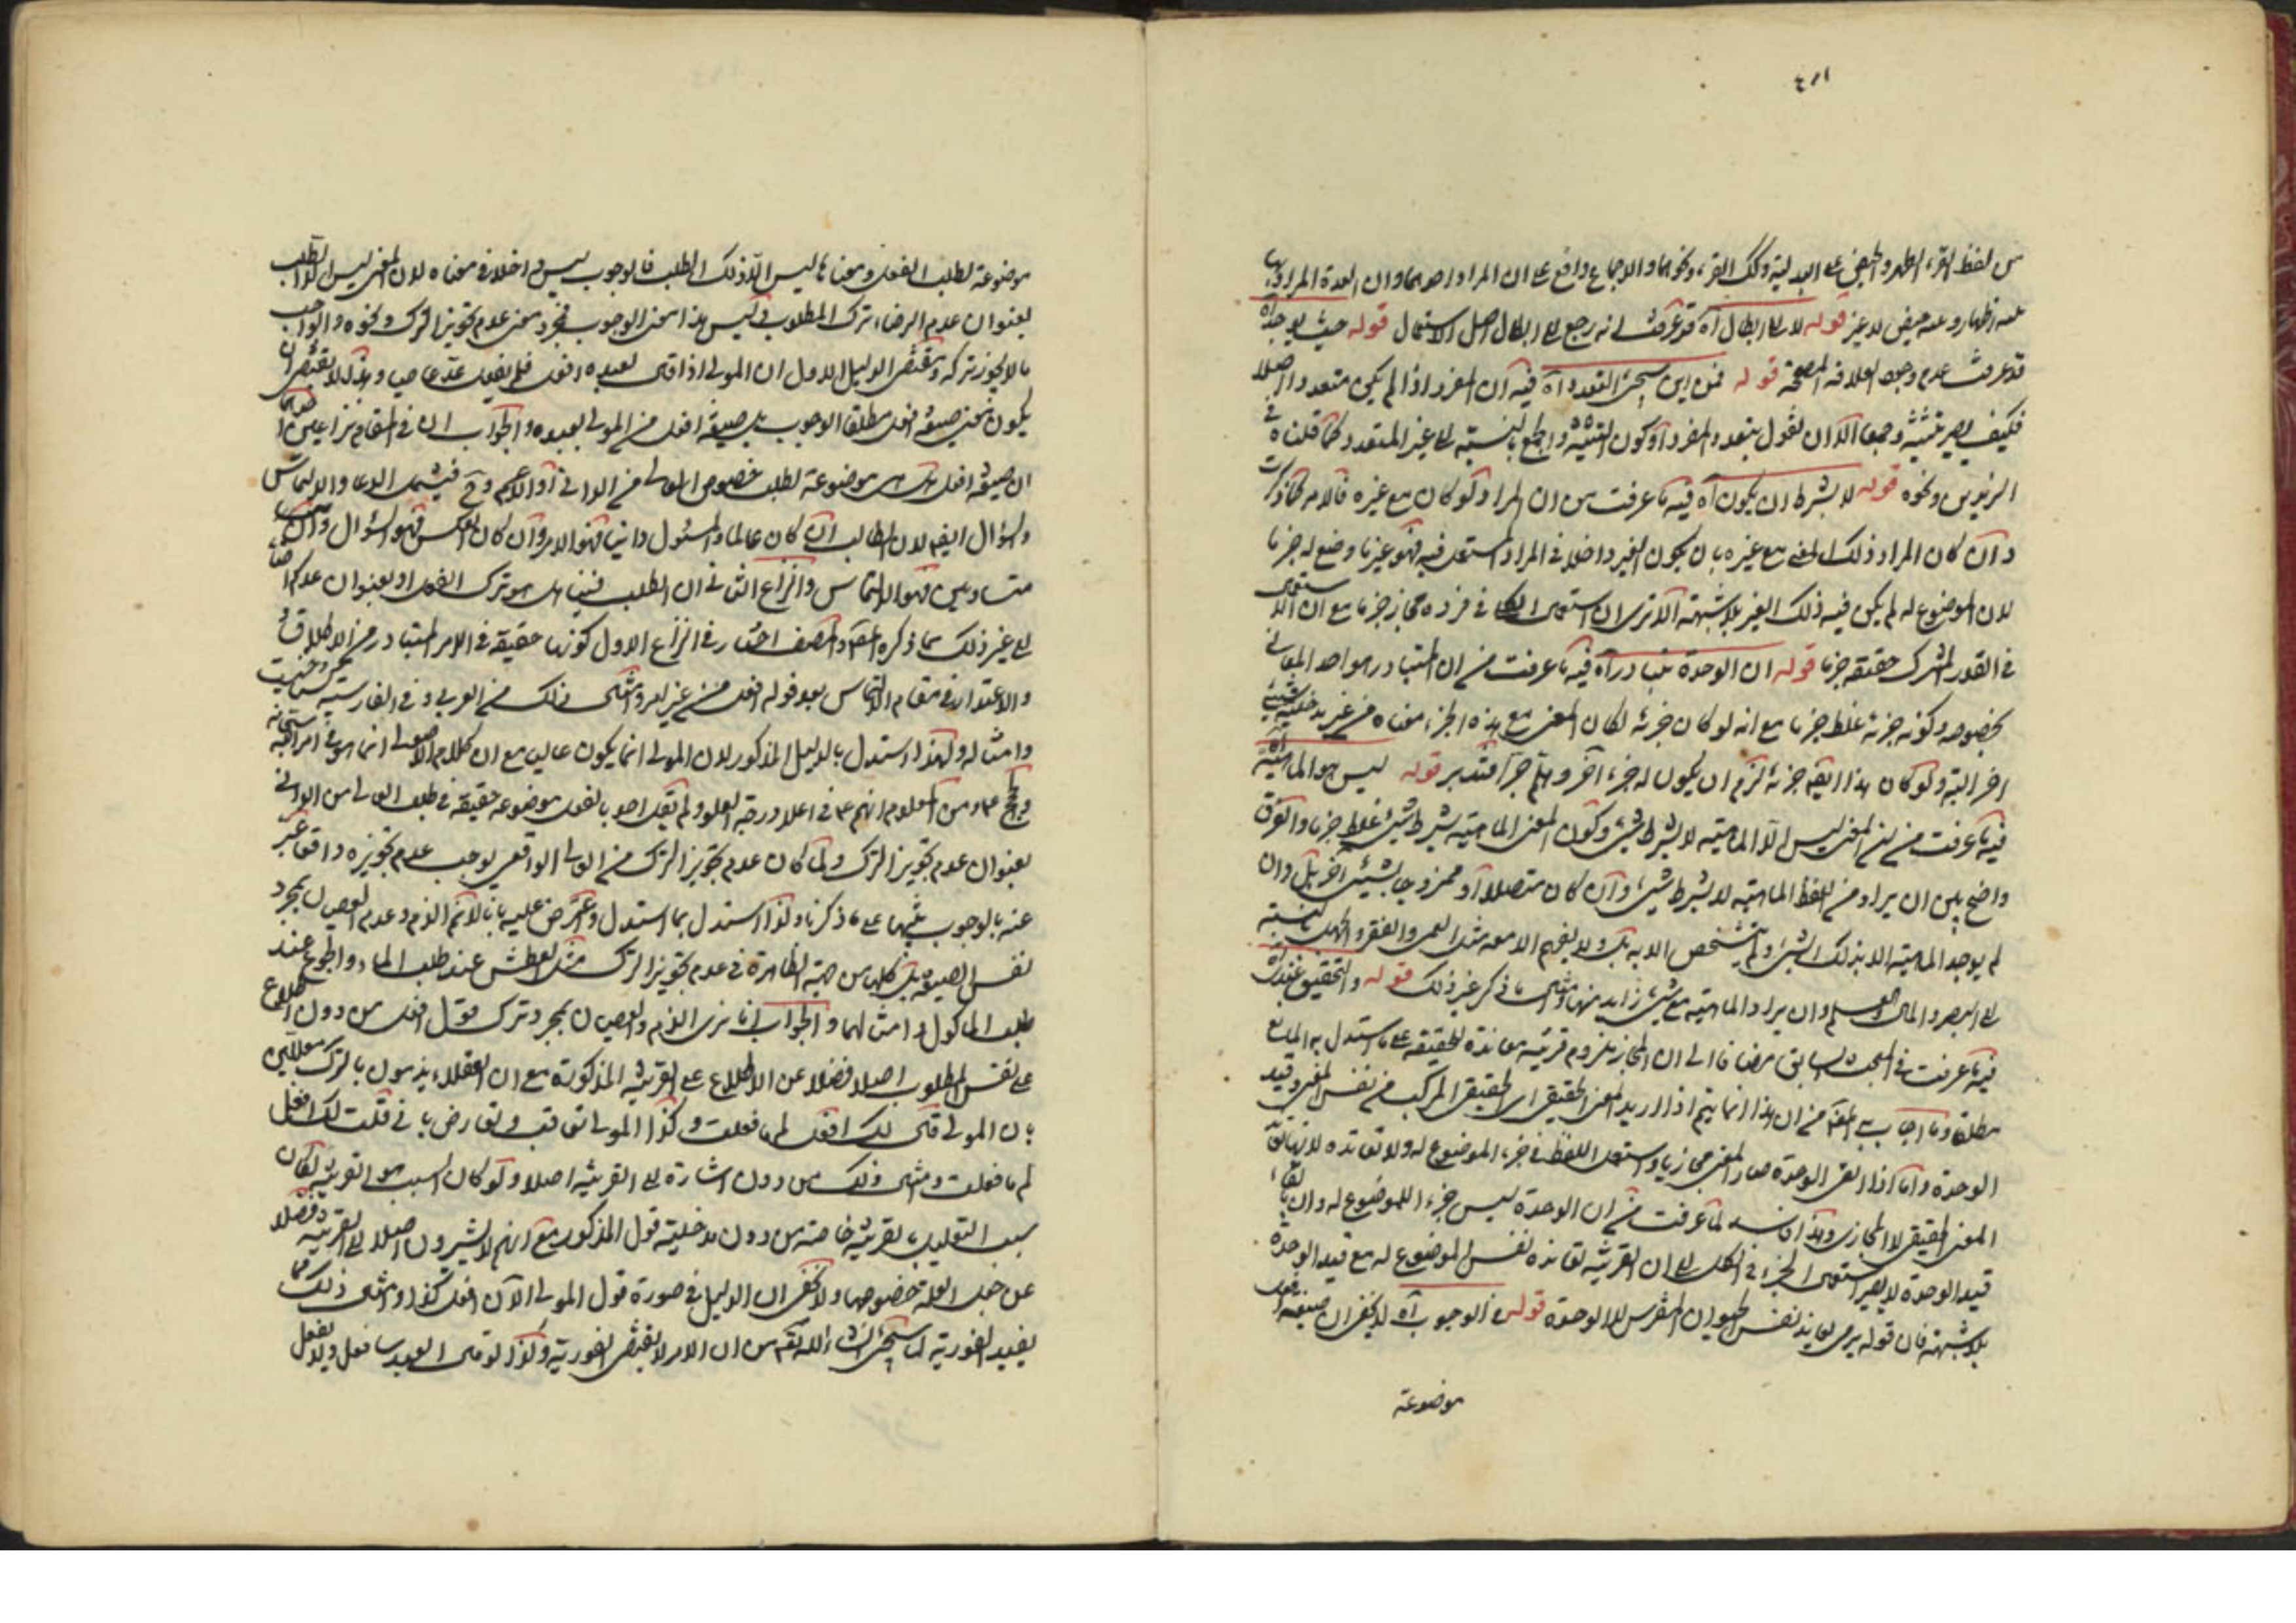 من لفظ القرء الطهر والحيض على البدلية وتلك القرء ونحوهما والاجماع واقع على ان المراد احدهما وان العدة المراد بها
عدة اطهار وعدة حيض لا غير قوله لا ابطال آه قد عرفت انه رجع الى ابطال اصل الاستعمال قوله حيث يوجد آه
قد عرفت عدم وجود العلاقة المصححة قوله فمن اين يجيء التعدد آه فيه ان المفرد اذا لم يكن متعددا اصلا
فكيف يصير تثنية وجمعا الا ان نقول بتعدد المفرد او كون التثنية والجمع بالنسبة الى غير المتعدد كما قلناه في
الزيدين ونحوه قوله لا بشرط ان يكون آه فيه ما عرفت من ان المراد لو كان مع غيره فالامر كما ذكرت
وان كان المراد ذلك المعنى مع غيره بان يكون الغير داخلا في المراد المستعمل فيه فهو غير ما وضع له جزما
لان الموضوع له لم يكن فيه ذلك الغير بلا شبهة الا ترى ان استعمال الكلي في فرده مجاز جزما مع ان استعماله
في القدر المشترك حقيقة جزما قوله ان الوحدة تتبادر آه فيه ما عرفت من ان المتبادر هو احد المعاني
بخصوصه وكونه جزئه غلط جزما مع انه لو كان جزئه لكان المعنى مع هذه الجزء معناه من غير مدخلية شيء
اخر البتة ولو كان هذا ايضا جزئه لزم ان يكون له جزء آخر وهلم جرا فتدبر قوله ليس هو الماهية آه
فيه ما عرفت من ان المعنى ليس الا الماهية لا بشرط شيء وكون المعنى الماهية بشرط شيء غلط جزما والفرق
واضح بين ان يراد من اللفظ الماهية لا بشرط شيء وان كان متصلا او ممزوجا بشيء آخر بل وان
لم يوجد الماهية الا بذلك الشيء ولم يتشخص الا به بل ولا يفهم الا معه مثل العمى والفقر والجهل بالنسبة
الى البصر والمال والعلم وان يراد الماهية مع شيء زايد منها ومثل ما ذكر غير ذلك قوله والتحقيق عندي آه
فيه ما عرفت في المبحث السابق مضافا الى ان المجاز ملزوم قرينة معاندة للحقيقة على ما استدل به المانع
مطلقا وما اجاب به المصنف من ان هذا انما يتم اذا اريد المعنى الحقيقي اي الحقيقي المركب من نفس المعنى وقيد
الوحدة واما اذا القي الوحدة صار المعنى مجازيا واستعمل اللفظ في جزء الموضوع له ولا تعانده لانها تعاند
المعنى الحقيقي لا المجازي وهذا فاسد لما عرفت من ان الوحدة ليس جزء الموضوع له وان بالقاء
قيد الوحدة لا يصير استعمال الجزء في الكل الى ان القرينة تعانده نفس الموضوع له مع قيد الوحدة
بلا شبهة فان قوله يرمي يعاند نفس الحيوان المفترس لا الوحدة قوله في الوجوب آه لا يخفى ان صيغة افعل
موضوعة
موضوعة لطلب الفعل ومعناها ليس الا ذلك الطلب فالوجوب ليس داخلا في معناه لان المعنى ليس الا الطلب
بعنوان عدم الرضاء بترك المطلوب وليس هذا معنى الوجوب بمجرد معنى عدم تجويز الترك ونحوه والواجب
ما لا يجوز تركه ومقتضى الدليل الاول ان المولى اذا قال لعبده افعل فلم يفعل عد عاصيا وهذا لا يقتضي ان
يكون نحن صيغة افعل مطلقا الوجوب بل صيغة افعل من المولى لعبده والجواب ان في المقام نزاعين احدهما
ان صيغة افعل هل هي موضوعة لطلب خصوص العالي من الداني او الاعم وح فيشمل الدعاء والالتماس
والسؤال ايضا لان الطالب ان كان عاليا والمسئول دانيا فهو الامر وان كان بالعكس فهو السؤال وان
متساويين فهو الالتماس والنزاع الثاني ان الطلب فيها هل هو ترك الفعل او بعنوان عدم الرضا
الى غير ذلك مما ذكره المصنف والمصنف اختار في النزاع الاول كونها حقيقة في الامر المتبادر من الاطلاق
والاعتذار في مقام الالتماس بعد قوله افعل من غير امر ومثل ذلك من العربي وفي الفارسية
وامثاله ولهذا استدل بالدليل المذكور لان المولى انما يكون عاليا مع ان كلام الاصولي انما هو في امر الله سبحانه
وحججه ع ومن المعلوم انهم ع في اعلا درجة العلو ولم يقل احد بالفعل موضوعة حقيقة في طلب العالي من الداني
بعنوان عدم تجويز الترك ولما كان عدم تجويز الترك من العالي الواقعي يوجب عدم تجويزه واقعا عبر
عنه بالوجوب تنبيها على ما ذكرنا ولذا استدل بما استدل واعترض عليه بانا لا نم الذم وعدم العصيان بمجرد
نفس الصيغة بل كلها من جهة الظاهرة في عدم تجويز الترك مثل العطش عند طلب الماء والجوع عند
طلب المأكول وامثالهما والجواب انا نرى الذم والعصيان بمجرد ترك قول افعل من دون اطلاع
على نفس المطلوب اصلا فضلا عن الاطلاع على القرينة المذكورة مع ان العقلاء يذمون بالترك معللين
بان المولى قال لك افعل لم ما فعلت وكذا المولى يعاقب ويعارض باني قلت لك افعل
لم ما فعلت ومثل ذلك من دون اشارة الى القرينة اصلا ولو كان السبب هو القرينة لكان
سبب التعليل بقرينة خاصة من دون مدخلية قول المذكور مع انهم لا يشيرون اصلا الى القرينة فضلا
عن جعل العلة خصوصها ولا يخفى ان الدليل في صورة قول المولى الآن افعل كذا ومثل ذلك مما
يفيد الفورية لما سيجيء انشاء الله تعالى من ان الامر لا يقتضي الفورية وكذا لو قال العبد سافعل ولا يفعل